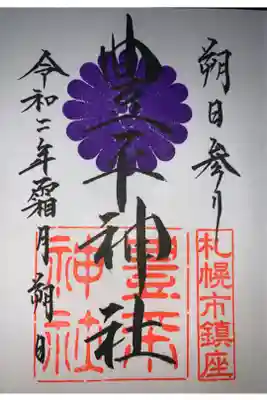 朔日参り
札幌市鎮座
豊平神社
豐平神社
令和二年霜月朔日